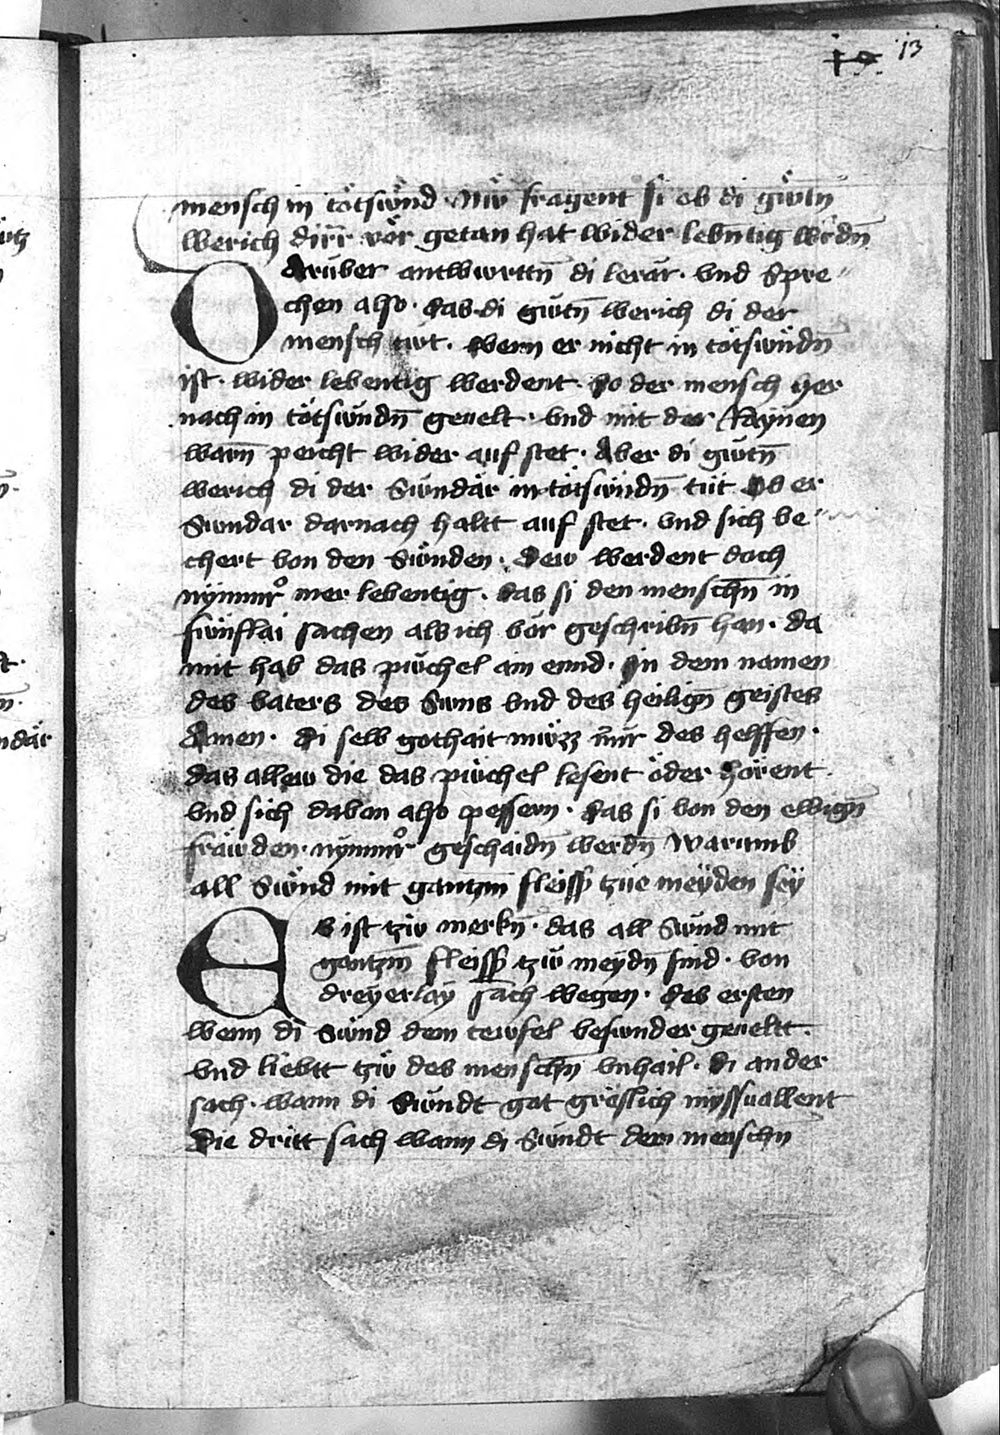 13
mensch in tötsw̎nd Nw̎ fragent si ob di gw̎tn
werich dir̄r vör getan hat wider lebntig wĕdn̄
Darüber antwurttn̄ di lerär · vnd Spre〃
chen also · das di gŵtn̄ werich di der
mensch twt · wern er nicht in tötsw̎ndn̄
ist · wider lebentig werdent · So der mensch her
nach in tötsw̎ndn̄ geuelt · vnd mit der Raynen
warn̄ peicht wider auf stet · Aber di gŵtn̄
werich di der Sw̎ndär in tötsw̎ndn̄ tüt Ob er
Swndar darnach haltt auf stet · vnd sich be〃
chert von den Sw̎nden · Dew werdent doch
nÿmmr̊ mer lebentig · das si den menschn̄ in
fw̎nflai sachen als ich vör geschribn̄ han · da
mit hab das pw̎chel ain ennd · In dem namen
des vaters des Suns vnd des heilign̄ geistes
Amen · Di selb gothait mw̎zz mir des helffen ·
das allew die das pw̎chel lesent öder hörent ·
vnd sich dauon also pessern · das si von den ewign̄
fräwden · nÿmmr̊ geschaidn̄ werdn̄ Warumb
all Sw̎nd mit gantzm̄ fleiss tzue meÿden seÿ
Es ist tzw merkn̄ · das all Sw̎nd mit
gantzm̄ fleiss tzw̎ meÿdn̄ sind · von
dreÿerlaÿ sach wegen · Des ersten
wenn di Sw̎nd dem tewfel besunder geueltt ·
vnd liebtt tzw̎ des menschn̄ vnhail · Di ander
sach · wann di Sw̎ndt got gröslich mÿssuallent
Die dritt sach wann di Sw̎ndt dem menschn